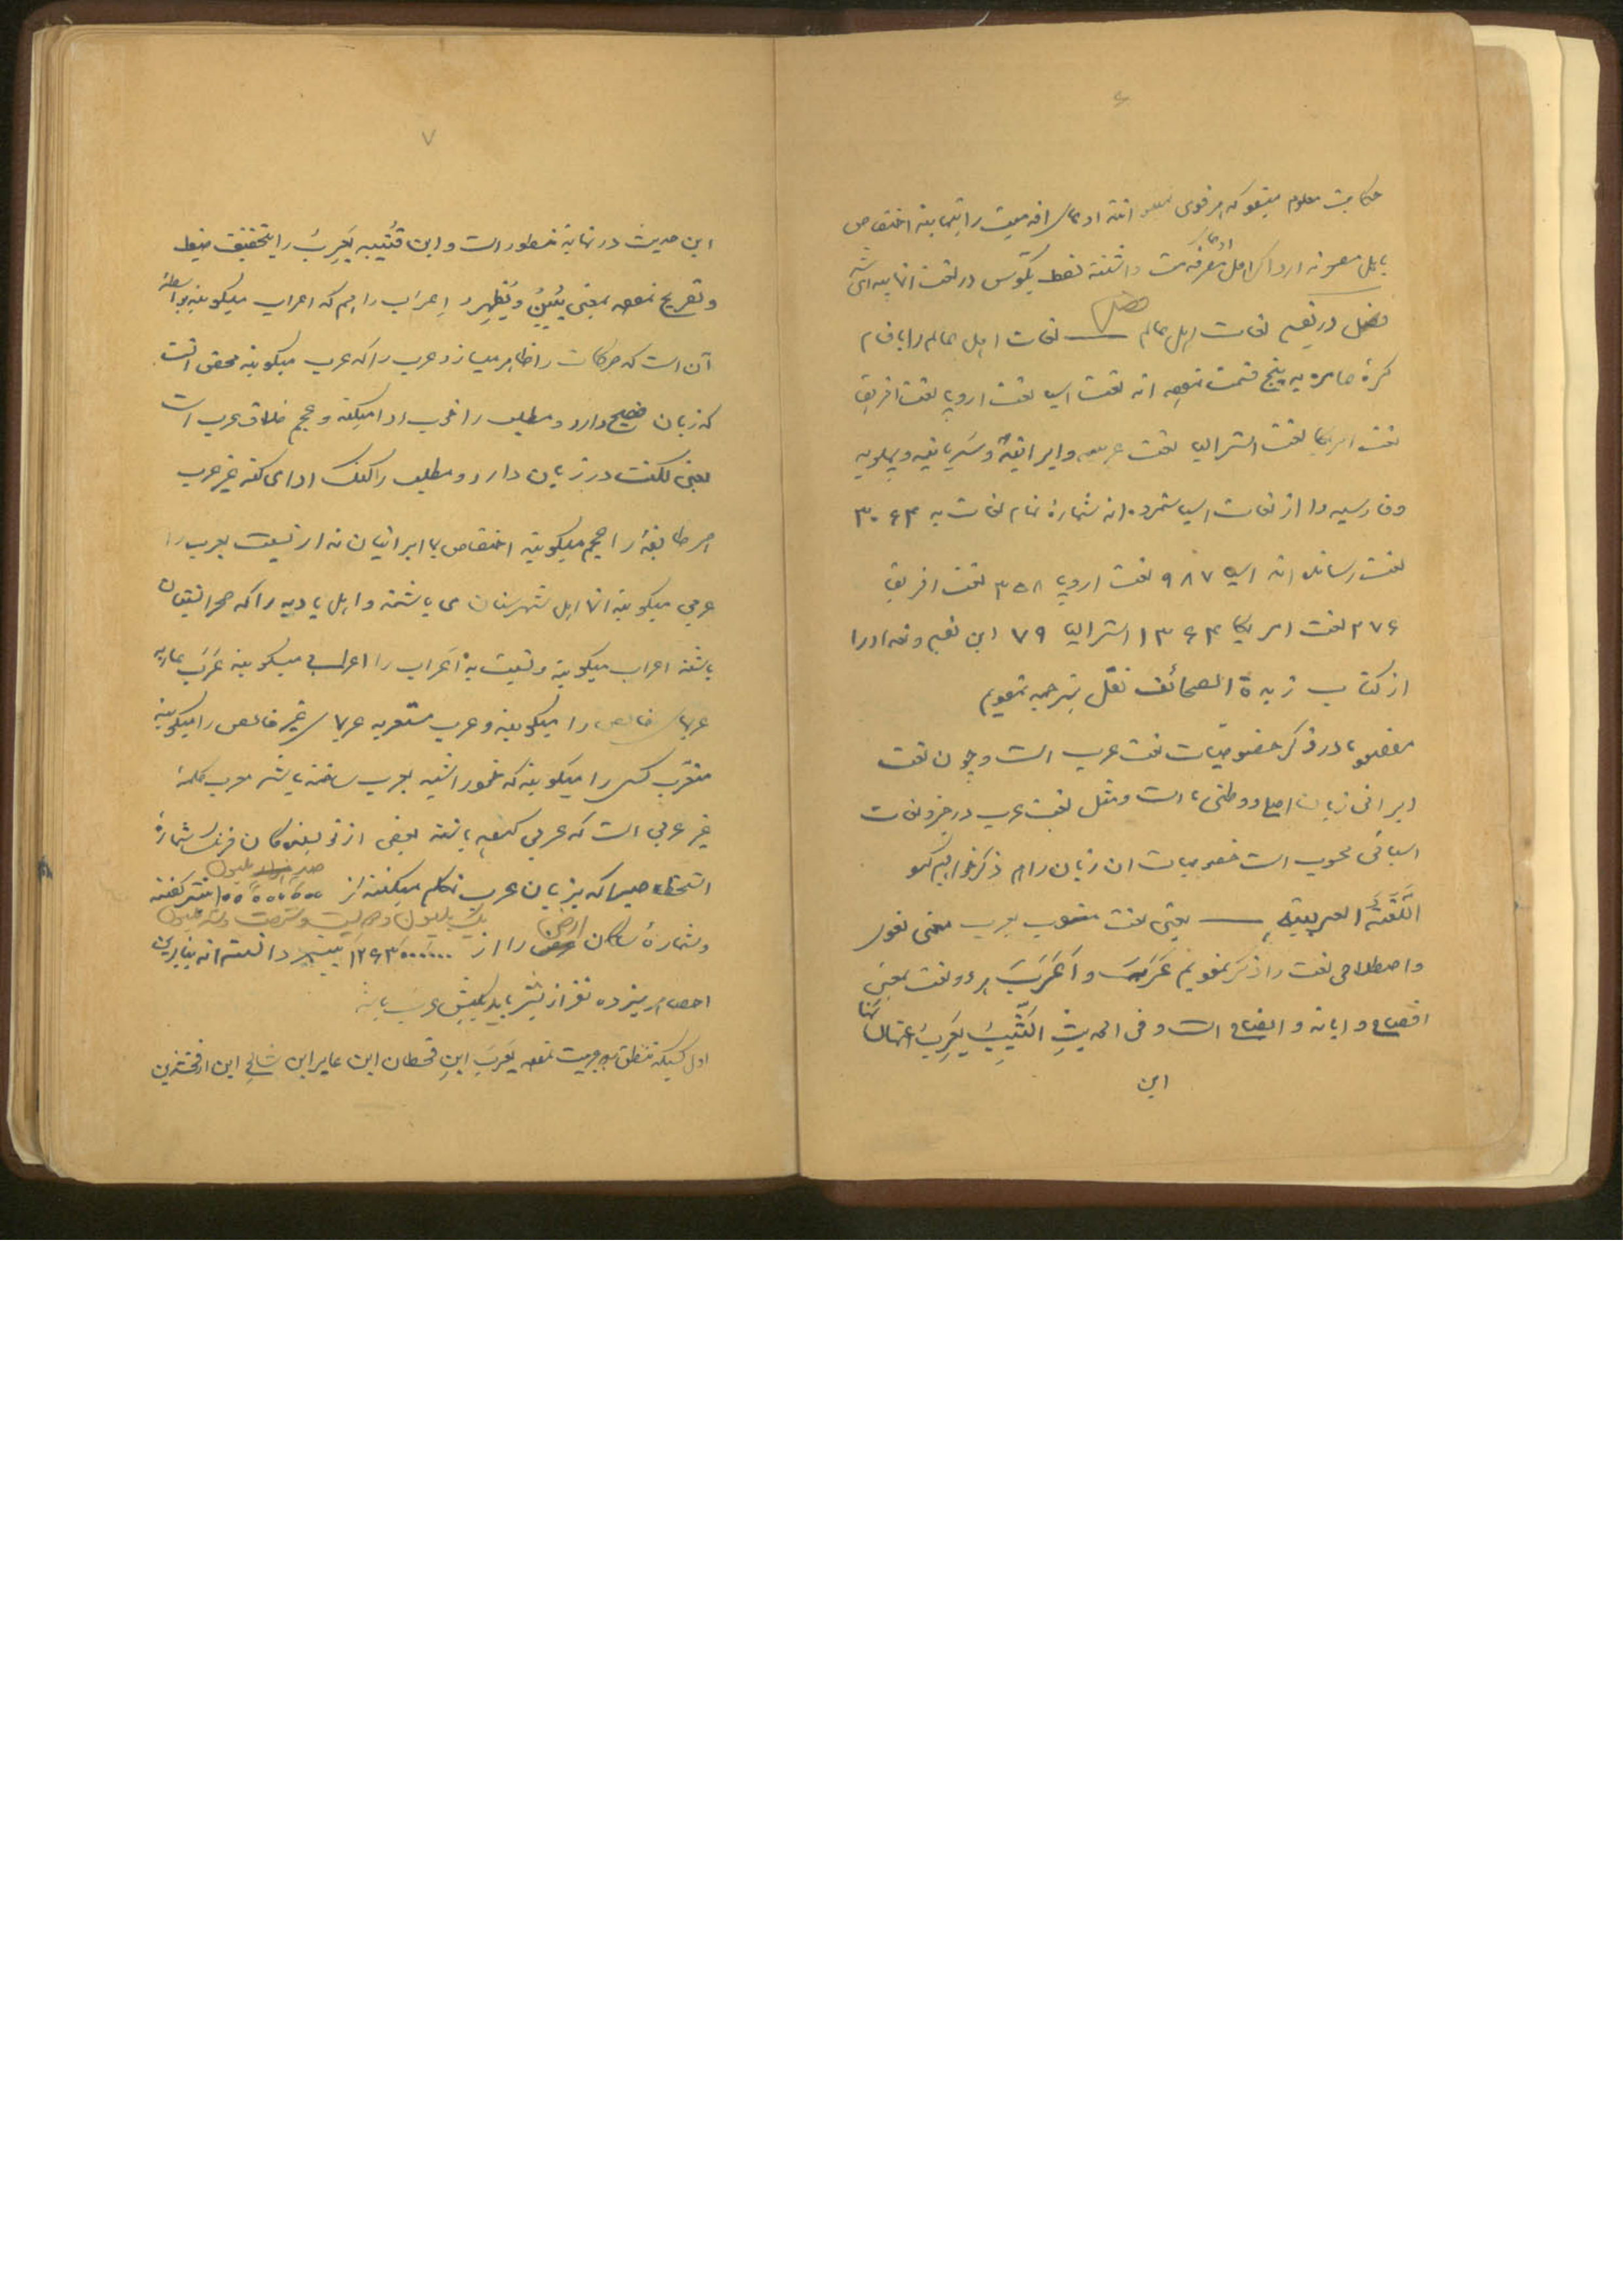 ۶
حکایت معلوم میشود که هر قومی ادعای اقدمیت را بتمامیه اختصاص
فصل
فصل در تقسیم لغات اهل عالم — لغات اهل عالم را باقسام
کرهٔ عامره به پنج قسمت نموده اند لغت اسیا لغت اروپا لغت افریقا
لغت امریکا لغت استرالیا لغت عربیه و ایرانیه و سریانیه و پهلویه
و فارسیه را از لغات اسیا شمرده اند شمارهٔ تمام لغات به ۳۰۶۴
لغت رسانده اند اسیا ۹۸۷ لغت اروپا ۳۵۸ لغت افریقا
۲۷۶ لغت امریکا ۱۳۶۴ استرالیا ۷۹ این تقسیم و تعداد را
از کتاب زبدة الصحائف نقل بترجمه نمودیم
مقصود ما در ذکر خصوصیات لغت عرب است و چون لغت
ایرانی زبان اصلی و وطنی ما است و مثل لغت عرب در جزو لغات
اسیائی محسوب است خصوصیات ان زبان را هم ذکر خواهیم نمود
اللّغَةُ العربیّة — یعنی لغت منسوب بعرب معنی لغوی
و اصطلاحی لغت را ذکر نمودیم عَرَبَ و اَعْرَبَ هر دو لغت بمعنی
افصاح و ابانه و ایضاح است و فی الحدیثِ الثَّیِّبُ یُعْرِبُ عنها لسانها
این
۷
این حدیث در نهایه مسطور است و ابن قُتَیبه یُعْرِبُ را بتخفیف ضبط
و تصریح نموده بمعنی یُبَیِّنُ و یُظْهِرُ و اِعراب را هم که اعراب میگویند بواسطهٔ
آن است که حرکات را ظاهر میسازد عرب را که عرب میگویند محض انست
که زبان فصیح دارد و مطلب را خوب ادا میکند و عجم خلاف عرب است
یعنی لکنت در زبان دارد و مطلب را گنگ ادای کند غیر عرب
هر طایفهٔ را عجم میگویند اختصاص با ایرانیان ندارد نسبت بعرب را
عربی میگویند انها اهل شهرستان می باشند و اهل بادیه را که صحرانشینان
باشند اعراب میگویند و نسبت به اَعراب را اعرابی میگویند عَرَبَ عاربه
عربهای خالص را میگویند و عرب مستعربه عربهای غیر خالص را میگویند
متعرب کسی را میگویند که خود را شبیه بعرب ساخته باشد معرب کلمهٔ
غیر عربی است که عربی کرده باشند بعضی از نویسندگان فرنگ شمارهٔ
صد میلیون
اشخاصیرا که بزبان عرب تکلم میکنند از ۱۰۰۰۰۰۰۰۰ بیشتر گفته
یک بلیون و دویست و شصت و سه میلیون
و شمارهٔ ساکنان ارض را از ۱۲۶۳۰۰۰۰۰۰ بیشتر دانسته اند بنابرین
اول کسیکه تنطق بعربیت نموده یَعْرَب ابنِ قحطان ابن عابر ابن شالح ابن ارفخشد ابن